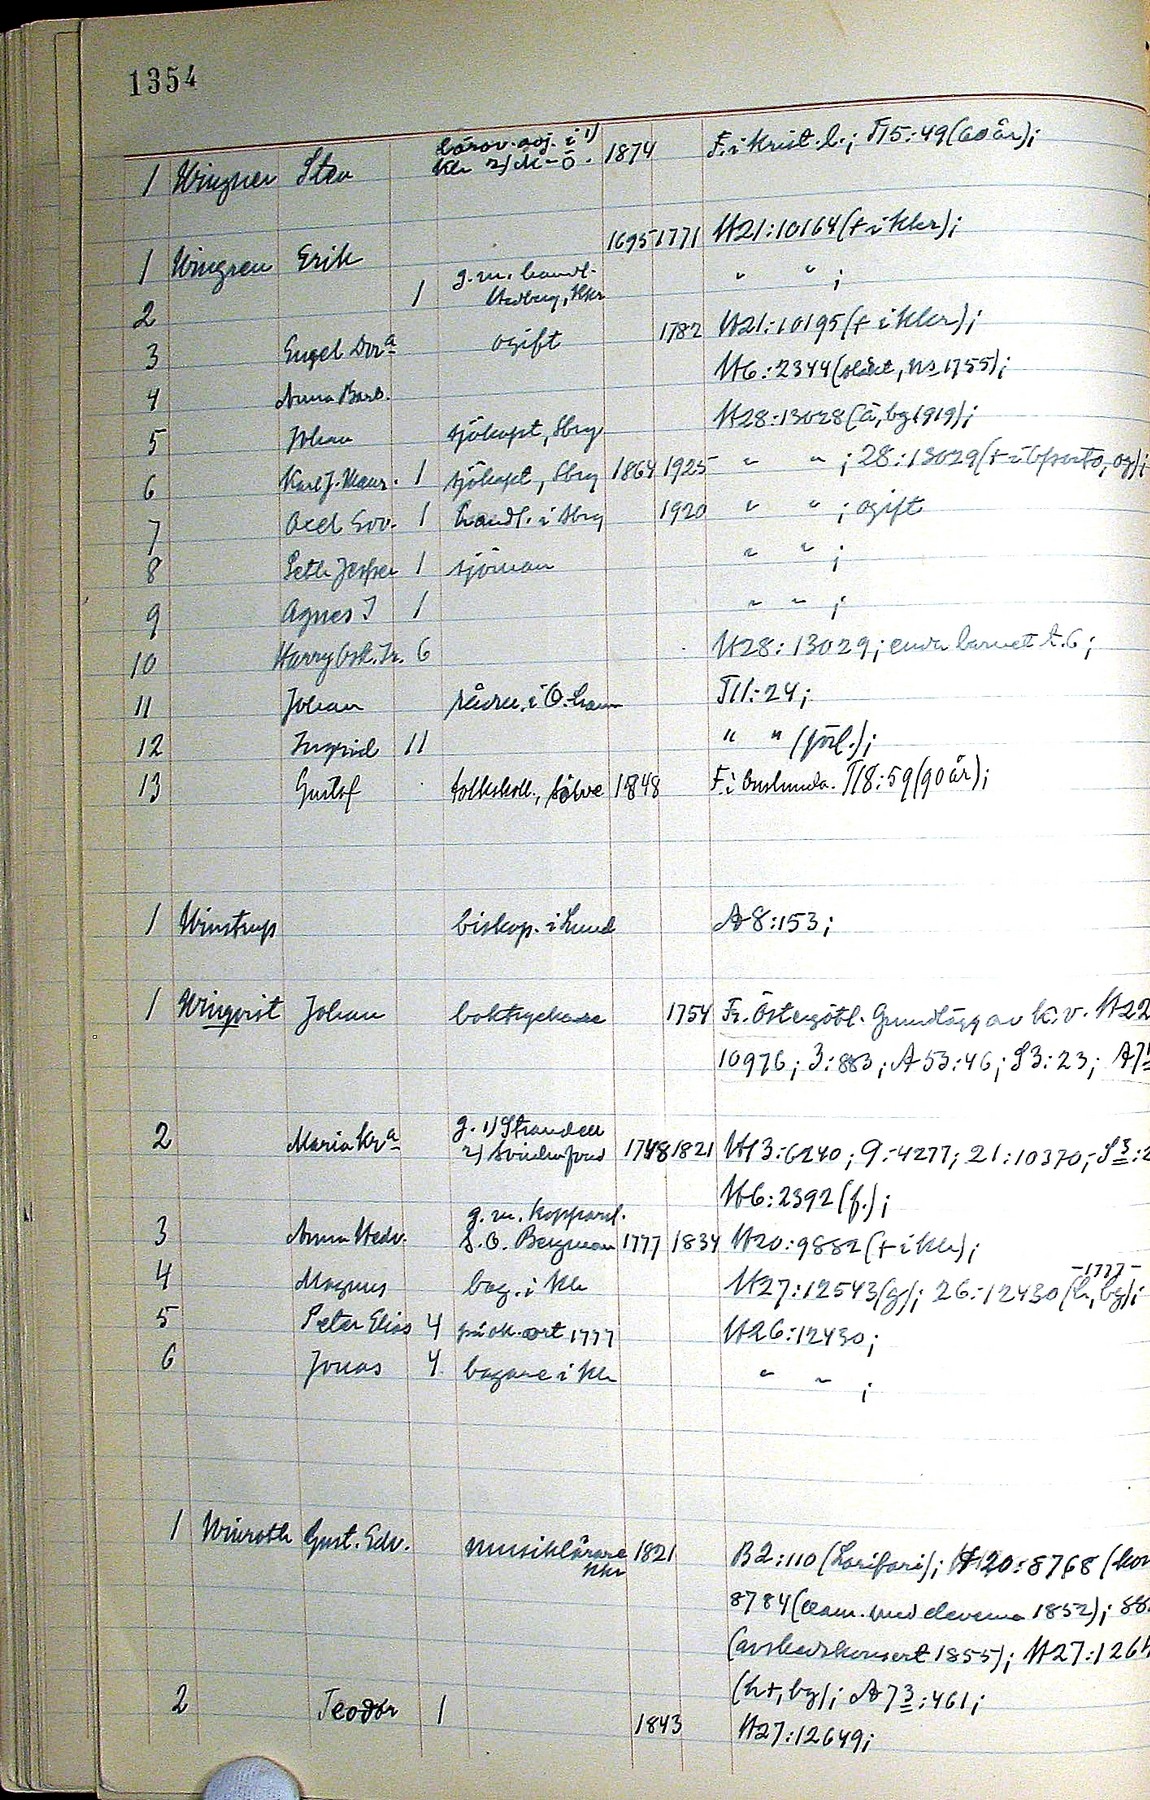 1354
1 Wingner Sten lärov.adj. i 1) Kr 2) M-ö. 1874 F. i Krist. l.; T15:49 (60 år);
1 Wingren Erik 1695 1771 H21:10164 († i Kkr);
2 1 g.m. handl. Hedberg, Kkr " " ;
3 Engel Dor:a ogift 1782 H21:10195 († i Kkr);
4 Anna Barb. H6:2344 (släkt, ns 1755);
5 Johan sjökapt, Sbrg H28:13028 (a, bg 1919);
6 Karl J. Maur. 1 sjökapt, Sbrg 1864 1925 " " ; 28:13029 († i og);
7 Axel Edv. 1 handl. i Sbrg 1920 " " ; ogift
8 Seth Jesper 1 sjöman " " ;
9 Agnes J 1 " " ;
10 Harry Osk. Fr. 6 H28:13029; enda barnet t. 6;
11 Johan i Ö. T11:24;
12 Ingrid 11 " " (förl.);
13 Gustaf folkskoll., Sölve 1848 F. i Onslunda. T18:59 (90 år);
1 Winstrup biskop. i Lund A8:153;
1 Winqvist Johan boktryckare 1754 Fr. Östergötl. Grundlägg av K. v. H22
10976; 3:883; A53:46; S3:23; A7
2 Maria Kr:a g. 1) Strandell 2) 1748 1821 H13:6240; 9:4277; 21:10370; S3:2
H6:2392 (f.);
3 Anna Hedv. g.m. kopparsl. S.O. Bergman 1777 1834 H20:9882 († i Kr);
4 Magnus bag. i Kr H27:12543 (g); 26:12430 (h, bg); -1777-
5 Peter Elias 4 1777 H26:12430;
6 Jonas 4 bagare i Kr " " ;
1 Winroth Gust. Edv. musiklärare Kkr 1821 B2:110 (Larifari); H20:8768 (kon
8784 (exam. med eleverna 1852); 88
(avskedskonsert 1855); H27:1264
(h†, bg); A73:461;
2 Teodor 1 1843 H27:12649;